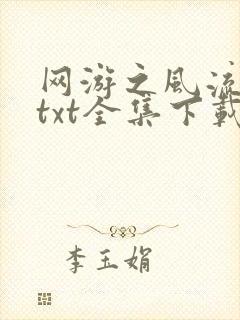 网游之风流
txt全集下载
李玉娟